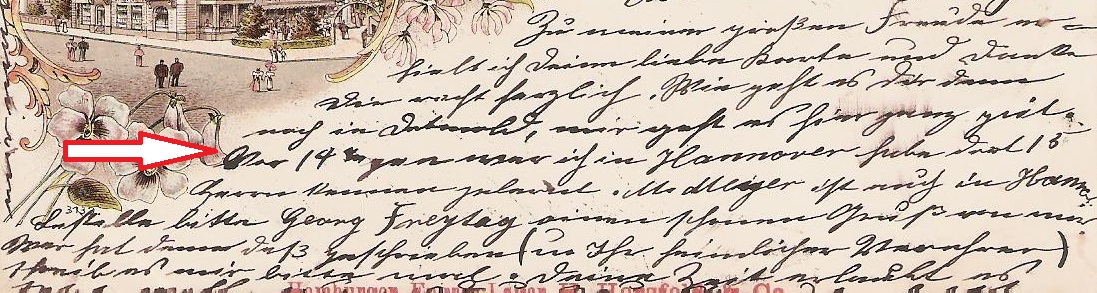 Zu meiner großen Freude er=
hielt ich Deine liebe Karte und Danke
Dir recht herzlich. Wie geht es Dir denn
noch in Detmold, mir geht es hier ganz gut.
Vor 14 war ich in Hannover habe dort 15
Herrn kennen gelernt. ist auch in Hann.
Bestelle bitte Georg Freytag einen schönen Gruß von mir
Wer hat denn daß geschrieben (in Ihr heimlicher Verehrer)
schreib es mir bitte mal. Deine Zeit erlaubt es
3739
Hamburger